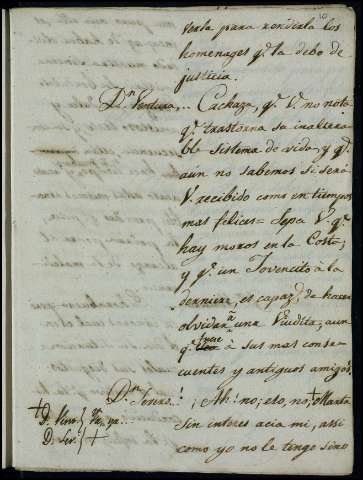 10
verla para rendirla los
homenages q.e la debo de
justicia.
D.n Ventura... Cachaza, q.e V. no nota
q.e trastorna su inaltera
ble sistema de vida, y q.e
aún no sabemos si será
V. recibido como en tiempos
mas felices = Sepa V. q.e
hay moros en la Costa;
y q.e un Jovencito à la
derniere, es capaz de hacer
olvidar à una Viudita, aun
q.e à sus mas conse
cuentes y antiguos amigos.
D.n ¡Ah! no; eso, no; + Marta
sin interes acia mi, assi
como yo no le tengo sino
+ D. Ven.
D. Ser. } +